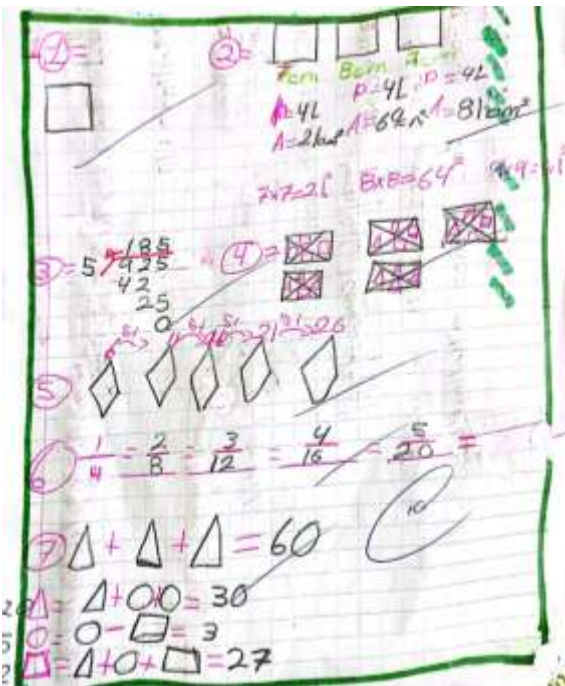 1=
2=
7cm 8cm 9cm
P=4L P=4L P=4L
A=21cm² A=64cm² A=81cm²
7x7=21 8x8=64² 9x9=81
3= 5 185
925
42
25
0
4=
5+ 5+ 5+ 5+
11 16 21 26
5
6 1/4 = 2/8 = 3/12 = 4/16 = 5/20 =
10
7 △ + △ + △ = 60
20 △ = △+○+○ = 30
5 ○ = ○ - □ = 3
2 □ = △+○+□ = 27